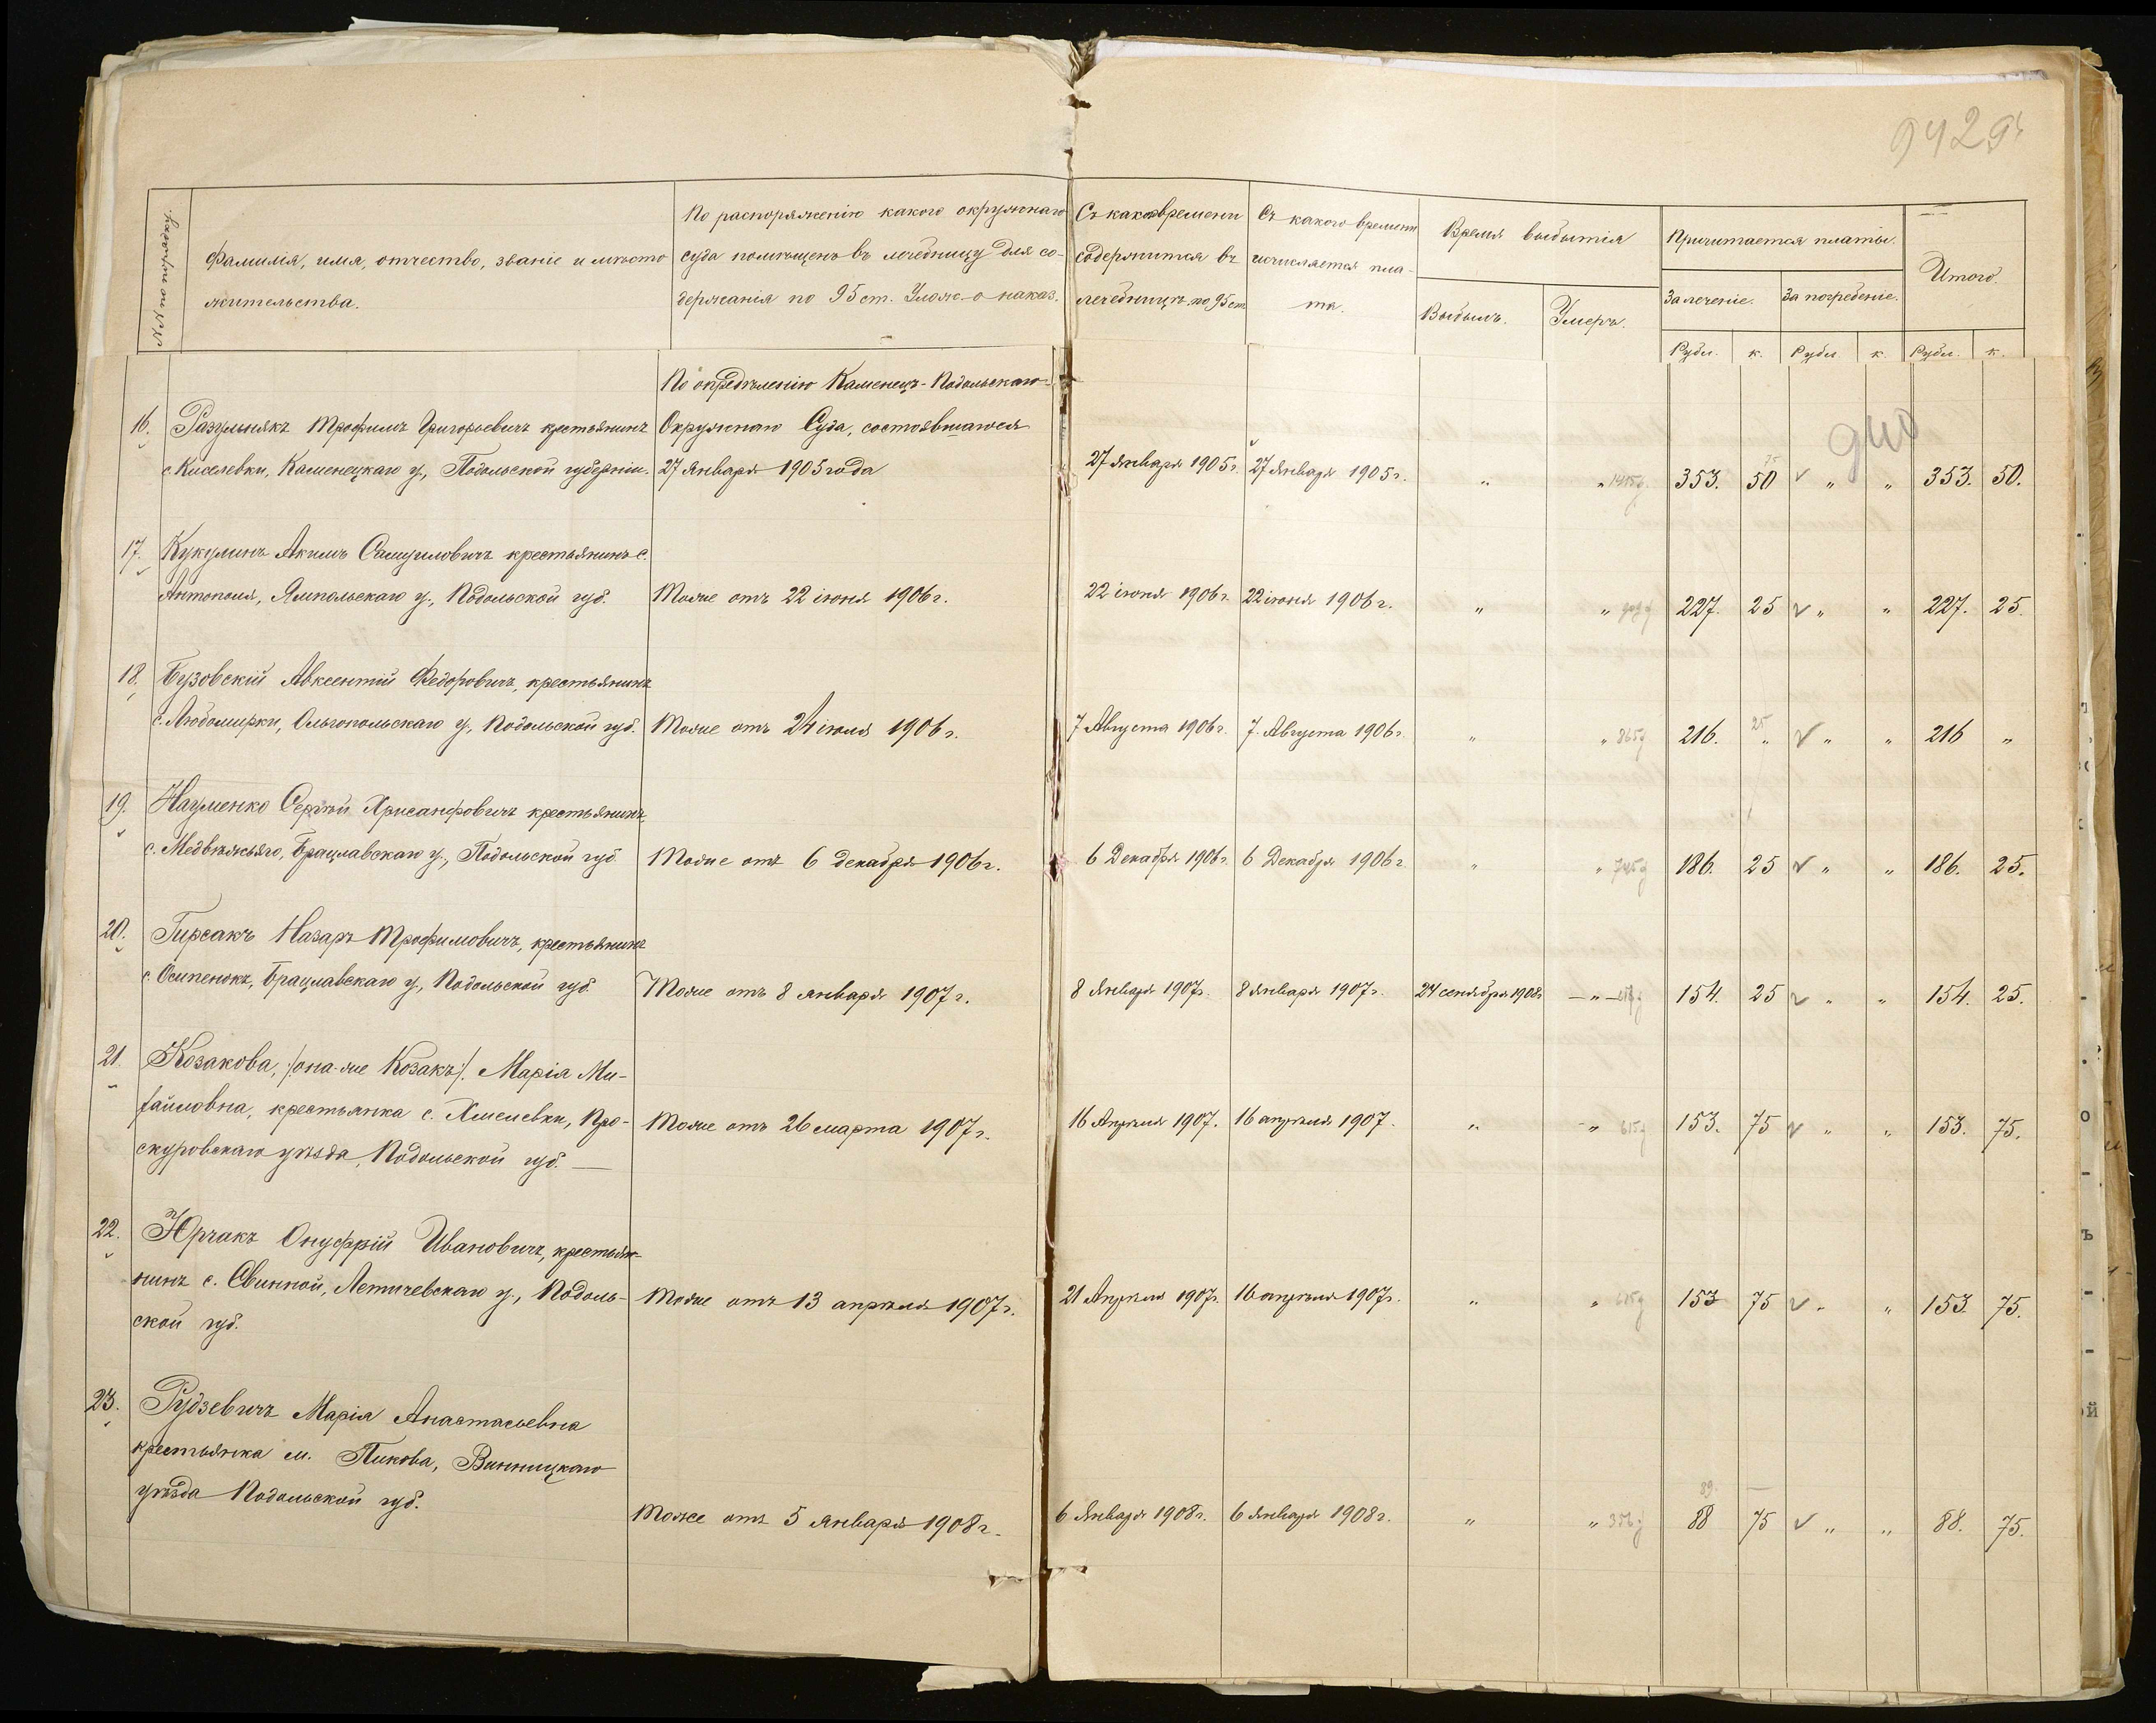 942
№№ по порядку.
Фамилія, имя, отчество, званіе и мѣсто
жительства.
По распоряженію какого окружнаго
суда помѣщенъ въ лечебницу для со-
держанія по 95 ст. Улож. о наказ.
Съ каков. времени
содержится въ
лечебницѣ по 95 ст.
Съ какого времени
исчисляется пла-
та.
Время выбытія
Выбылъ.
Умеръ.
Причитается платы.
За леченіе.
За погребеніе.
Итого.
Рубл. к. Рубл к. Рубл. к.
По опредѣленію Каменецъ-Подольскаго
16. Разумнякъ Трофимъ Григорьевичъ крестьянинъ Окружнаго Суда, состоявшагося
с. Киселевки, Каменецкаго у., Подольской губерніи. 27 Января 1905 года 27 Января 1905 г. 27 Января 1905 г. " " 353. 50 " " 353. 50.
940
17. Кукулинъ Акимъ Самуиловичъ крестьянинъ с.
Антополя, Ямпольскаго у., Подольской губ. Тоже отъ 22 іюня 1906 г. 22 іюня 1906 г. 22 іюня 1906 г. " " 227. 25 " " 227. 25.
18. Бузовскій Авксентій Федоровичъ, крестьянинъ
с. Любомирки, Ольгопольскаго у., Подольской губ. Тоже отъ 24 іюля 1906 г. 7 Августа 1906 г. 7. Августа 1906 г. " " 865 216. 25 " " " 216 "
19. Науменко Сергѣй Хрисанфовичъ крестьянинъ
с. Медвѣжьяго, Брацлавскаго у., Подольской губ. Тоже отъ 6 декабря 1906 г. 6 Декабря 1906 г. 6 Декабря 1906 г " " 745 186. 25 " " 186. 25.
20. Гирсакъ Назаръ Трофимовичъ, крестьянинъ
с. Осипенокъ, Брацлавскаго у., Подольской губ. Тоже отъ 8 января 1907 г. 8 Января 1907 г. 8 января 1907 г. 24 сентября 1908 г. " 154. 25 " " 154. 25.
21. Козакова, /она-же Козакъ/. Марія Ми-
хайловна, крестьянка с. Хмелевки, Про- Тоже отъ 26 марта 1907 г. 16 Апрѣля 1907. 16 апрѣля 1907. " " 615 153. 75 " " 153. 75.
скуровскаго уѣзда, Подольской губ. —
22. Юрчакъ Онуфрій Ивановичъ, крестья-
нинъ с. Свинной, Летичевскаго у., Подоль- Тоже отъ 13 апрѣля 1907 г. 21 Апрѣля 1907 г. 16 апрѣля 1907 г. " " 615 153 75 " " 153. 75.
ской губ.
23. Рудзевичъ Марія Анастасьевна
крестьянка м. Пикова, Винницкаго
уѣзда Подольской губ. 89. —
Тоже отъ 5 января 1908 г. 6 Января 1908 г. 6 Января 1908 г. " " 356 88 75 " " 88. 75.